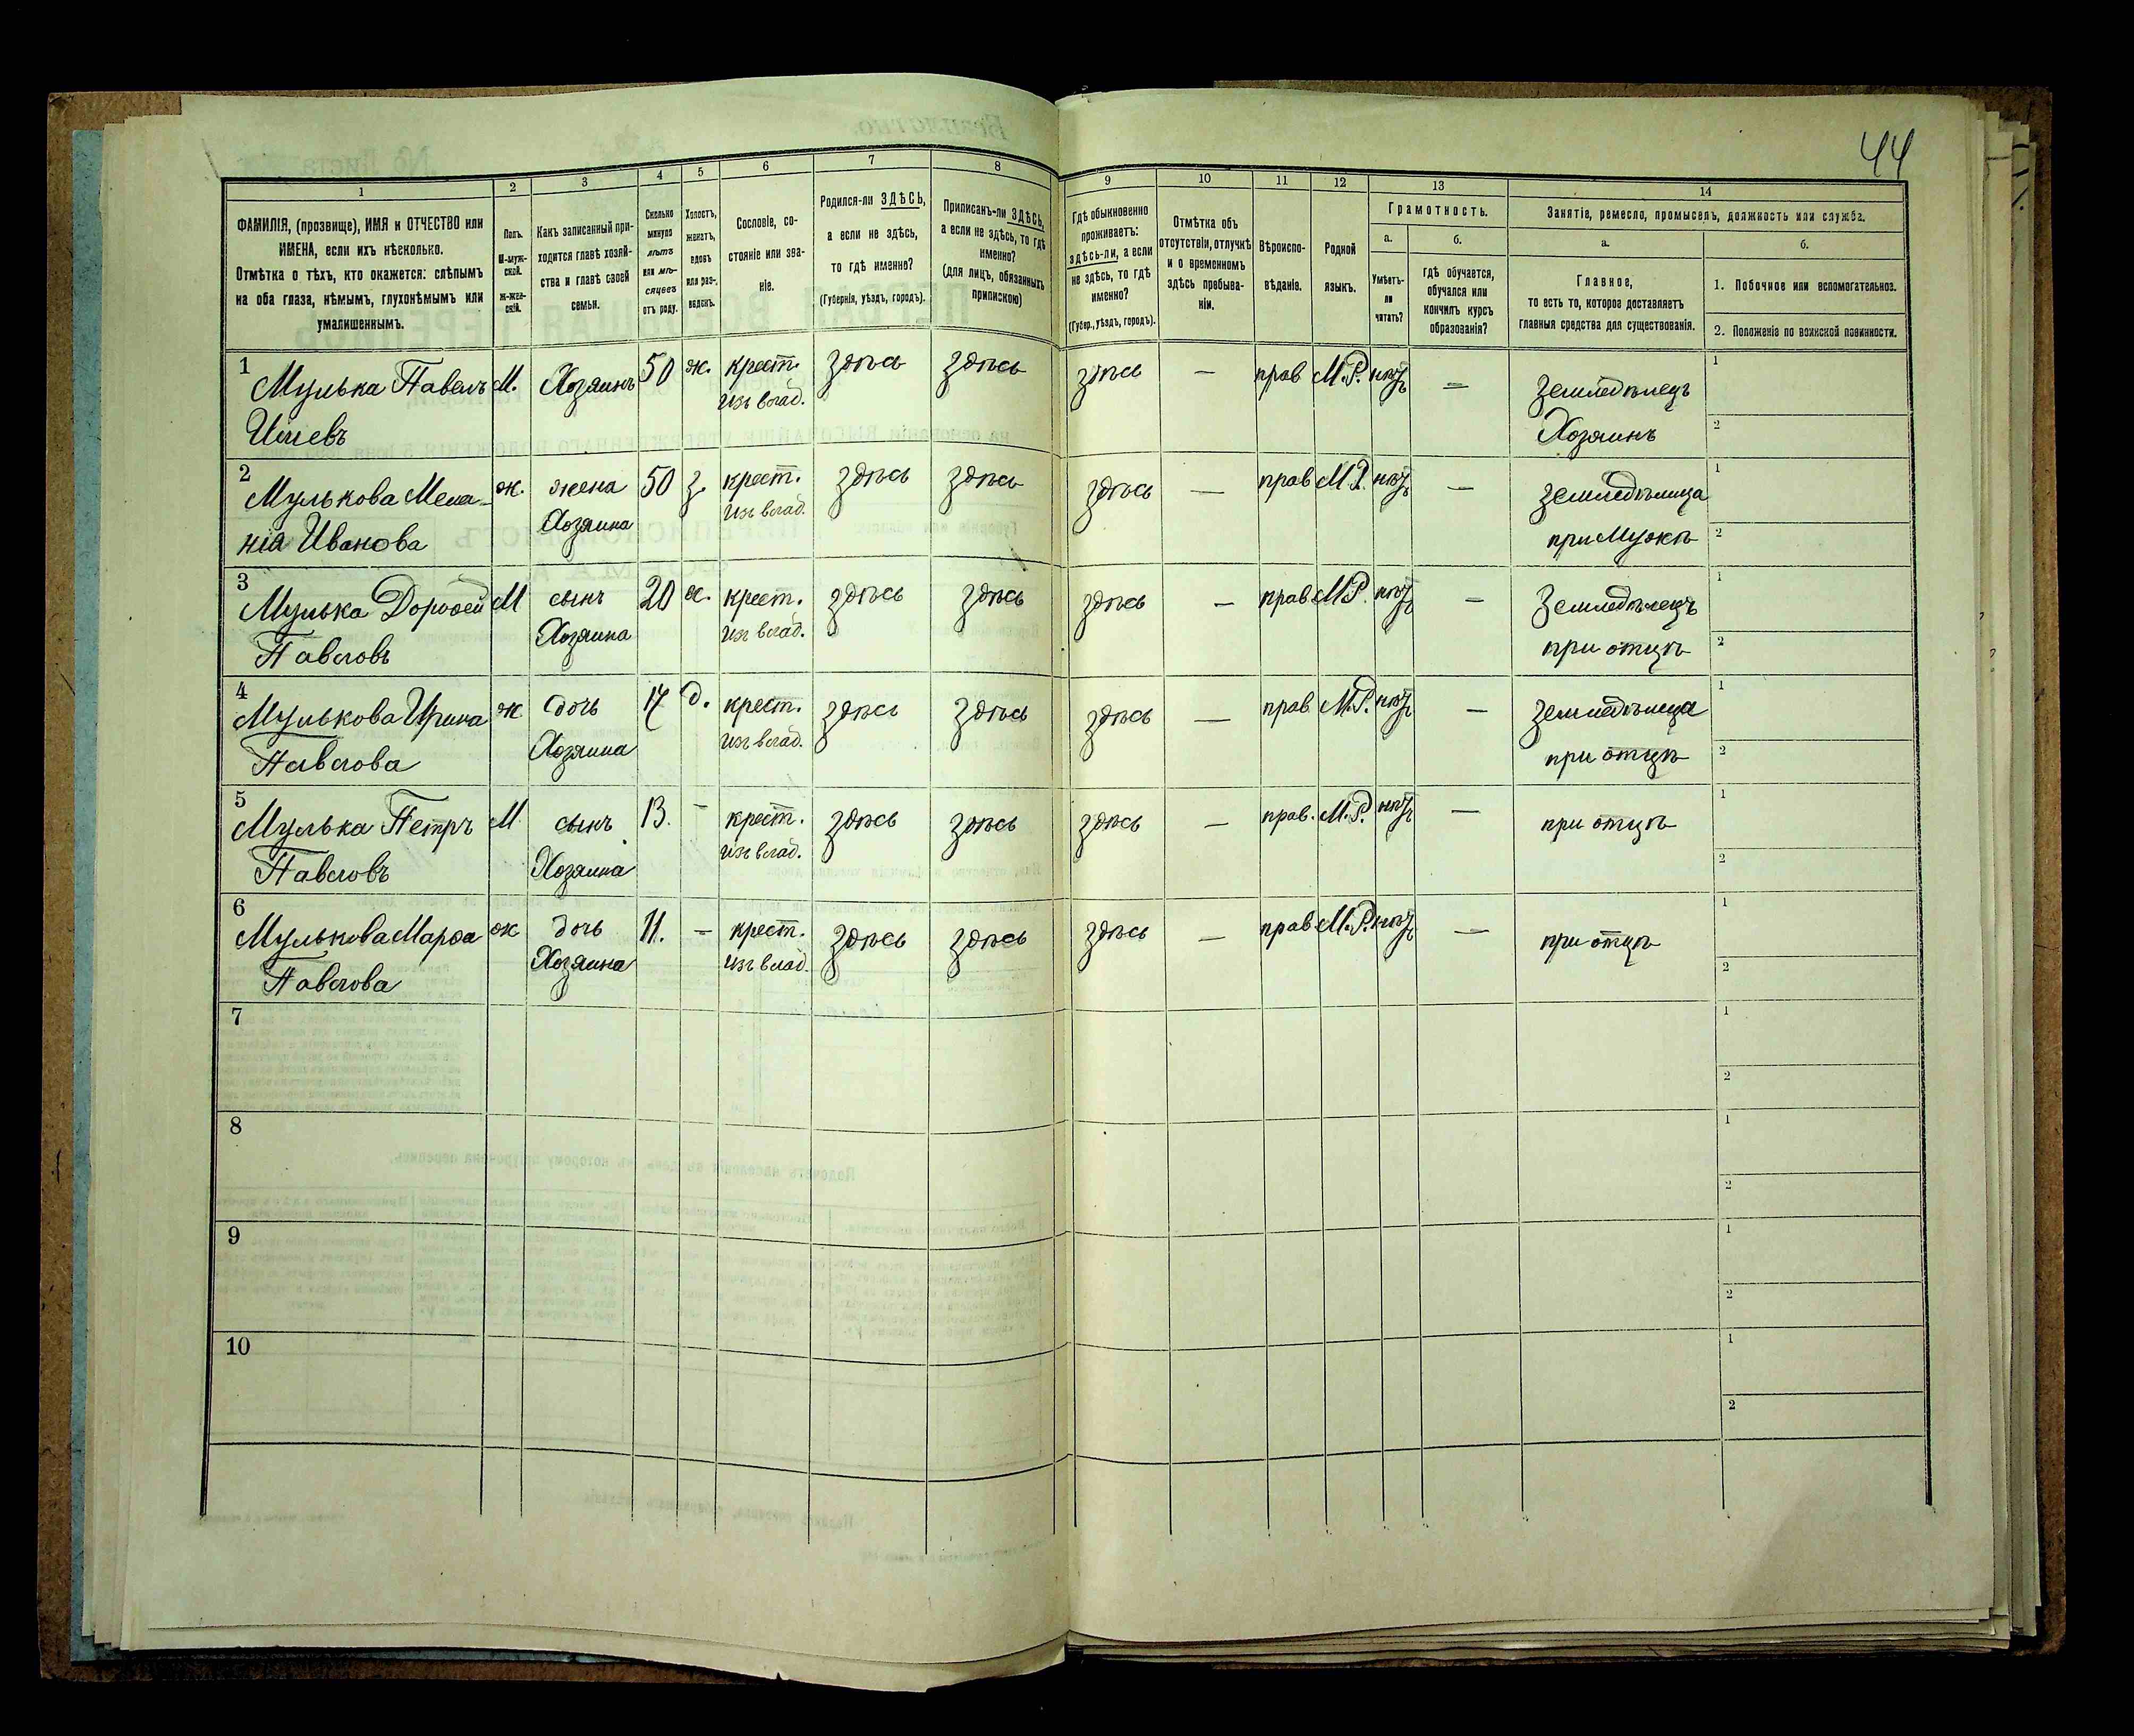 44
1
2
3
4
5
6
7
8
9
10
11
12
13
14
ФАМИЛІЯ, (прозвище), ИМЯ и ОТЧЕСТВО или
ИМЕНА, если ихъ нѣсколько.
Отмѣтка о тѣхъ, кто окажется: слѣпымъ
на оба глаза, нѣмымъ, глухонѣмымъ или
умалишеннымъ.
Полъ.
М-муж-
ской.
Ж-жен-
скій.
Какъ записанный при-
ходится главѣ хозяй-
ства и главѣ своей
семьи.
Сколько
минуло
лѣтъ
или мѣ-
сяцевъ
отъ роду.
Холостъ,
женатъ,
вдовъ
или раз-
веденъ.
Сословіе, со-
стояніе или зва-
ніе.
Родился-ли ЗДѢСЬ,
а если не здѣсь,
то гдѣ именно?
(Губернія, уѣздъ, городъ).
Приписанъ-ли ЗДѢСЬ,
а если не здѣсь, то гдѣ
именно?
(для лицъ, обязанныхъ
припискою)
Гдѣ обыкновенно
проживаетъ:
здѣсь-ли, а если
не здѣсь, то гдѣ
именно?
(Губер., уѣздъ, городъ).
Отмѣтка объ
отсутствіи, отлучкѣ
и о временномъ
здѣсь пребыва-
ніи.
Вѣроиспо-
вѣданіе.
Родной
языкъ.
Грамотность.
а.
Умѣетъ-
ли
читать?
б.
гдѣ обучается,
обучался или
кончилъ курсъ
образованія?
Занятіе, ремесло, промыселъ, должность или служба.
а.
Главное,
то есть то, которое доставляетъ
главныя средства для существованія.
б.
1. Побочное или вспомогательное.
2. Положеніе по воинской повинности.
1
Мулька Павелъ М. Хозяинъ 50 ж. крест. здѣсь здѣсь здѣсь — прав М.Р. нѣтъ — Земледѣлецъ 1
Ильевъ изъ влад. Хозяинъ 2
2
Мулькова Мела- ж. жена 50 з. крест. здѣсь здѣсь здѣсь — прав М.Р. нѣтъ — земледѣлица 1
нія Иванова Хозяина изъ влад. при Мужѣ 2
3
Мулька Дороѳей М сынъ 20 х. крест. здѣсь здѣсь здѣсь — прав М.Р. нѣтъ — Земледѣлецъ 1
Павловъ Хозяина изъ влад. при отцѣ 2
4
Мулькова Ирина ж дочь 17 д. крест. здѣсь здѣсь здѣсь — прав М.Р. нѣтъ — земледѣлица 1
Павлова Хозяина изъ влад. при отцѣ 2
5
Мулька Петръ М. сынъ 13. - крест. здѣсь здѣсь здѣсь — прав. М.Р. нѣтъ — при отцѣ 1
Павловъ Хозяина изъ влад. 2
6
Мулькова Марѳа ж дочь 11. — крест. здѣсь здѣсь здѣсь — прав М.Р. нѣтъ — при отцѣ 1
Павлова Хозяина изъ влад. 2
7 1
2
8 1
2
9 1
2
10 1
2